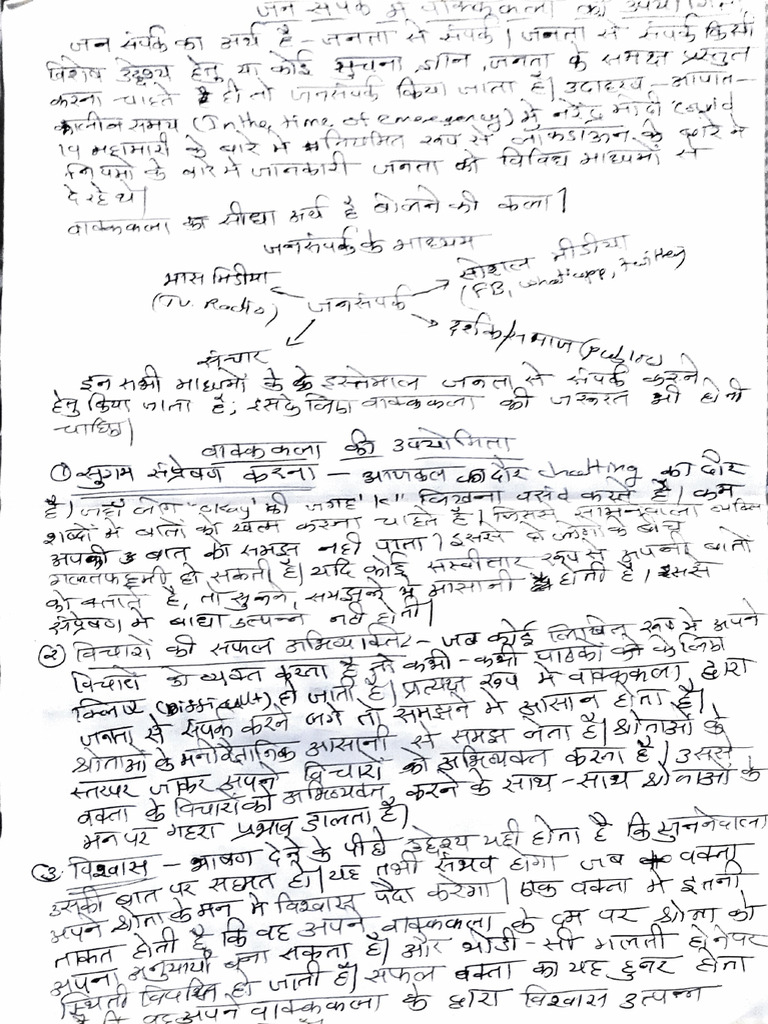 जन संपर्क में वाक्ककला की उपयोगिता
जन संपर्क का अर्थ है - जनता से संपर्क। जनता से संपर्क किसी
विशेष उद्देश्य हेतु या कोई सूचना, ज्ञान, जनता के समक्ष प्रस्तुत
करना चाहते है ही तो जनसंपर्क किया जाता है। उदाहरण - आपात-
कालीन समय (In the time of emergency) में नरेंद्र मोदी covid
19 महामारी के बारे में नियमित रूप से लॉकडाऊन के बारे में
नियमों के बारे में जानकारी जनता को विविध माध्यमों से
दे रहे थे।
वाक्ककला का सीधा अर्थ है बोलने की कला।
जनसंपर्क के माध्यम
मास मिडीया सोशल मीडीया
(TV. Radio) जनसंपर्क (FB, whatsapp, twitter)
संचार दर्शक/समाज (Public)
इन सभी माध्यमों के इस्तेमाल जनता से संपर्क करने
हेतु किया जाता है; इसके लिए वाक्ककला की जरूरत भी होनी
चाहिए।
वाक्ककला की उपयोगिता
① सुगम संप्रेषण करना - आजकल का दौर chatting का दौर
है। जहाँ लोग 'okay' की जगह 'K' लिखना पसंद करते है। कम
शब्दों में बातों को खत्म करना चाहते है। जिससे सामनेवाला व्यक्ति
आपकी बात को समझ नही पाता। इससे दो लोगों के बीच
गलतफहमी हो सकती है। यदि कोई सविस्तार रूप से अपनी बातों
को बताते है, तो सुनने, समझने में आसानी होती है। इससे
संप्रेषण में बाधा उत्पन्न नही होती।
② विचारों की सफल अभिव्यक्ति - जब कोई लिखित रूप में अपने
विचारों को व्यक्त करता है तो कभी-कभी पाठकों के लिए
क्लिष्ट (Difficult) हो जाती है। प्रत्यक्ष रूप में वाक्ककला द्वारा
जनता से संपर्क करने लगे तो समझने में आसान होता है।
श्रोताओं के मनोवैज्ञानिक आसानी से समझ लेता है। श्रोताओं के
स्तरपर जाकर अपने विचारों को अभिव्यक्त करता है। उससे
वक्ता के विचारों को अभिव्यक्त करने के साथ-साथ श्रोताओं के
मन पर गहरा प्रभाव डालता है।
③ विश्वास - भाषण देने के पीछे उद्देश्य यही होता है कि सुननेवाला
उसकी बात पर सहमत हो। यह तभी संभव होगा जब वक्ता
अपने श्रोता के मन में विश्वास पैदा करेगा। एक वक्ता में इतनी
ताकत होती है कि वह अपने वाक्ककला के दम पर श्रोता को
अपना अनुयायी बना सकता है। और थोडी-सी गलती होनेपर
स्थिती विपरित हो जाती है। सफल वक्ता का यह हुनर होता
है कि वह अपने वाक्ककला के द्वारा विश्वास उत्पन्न